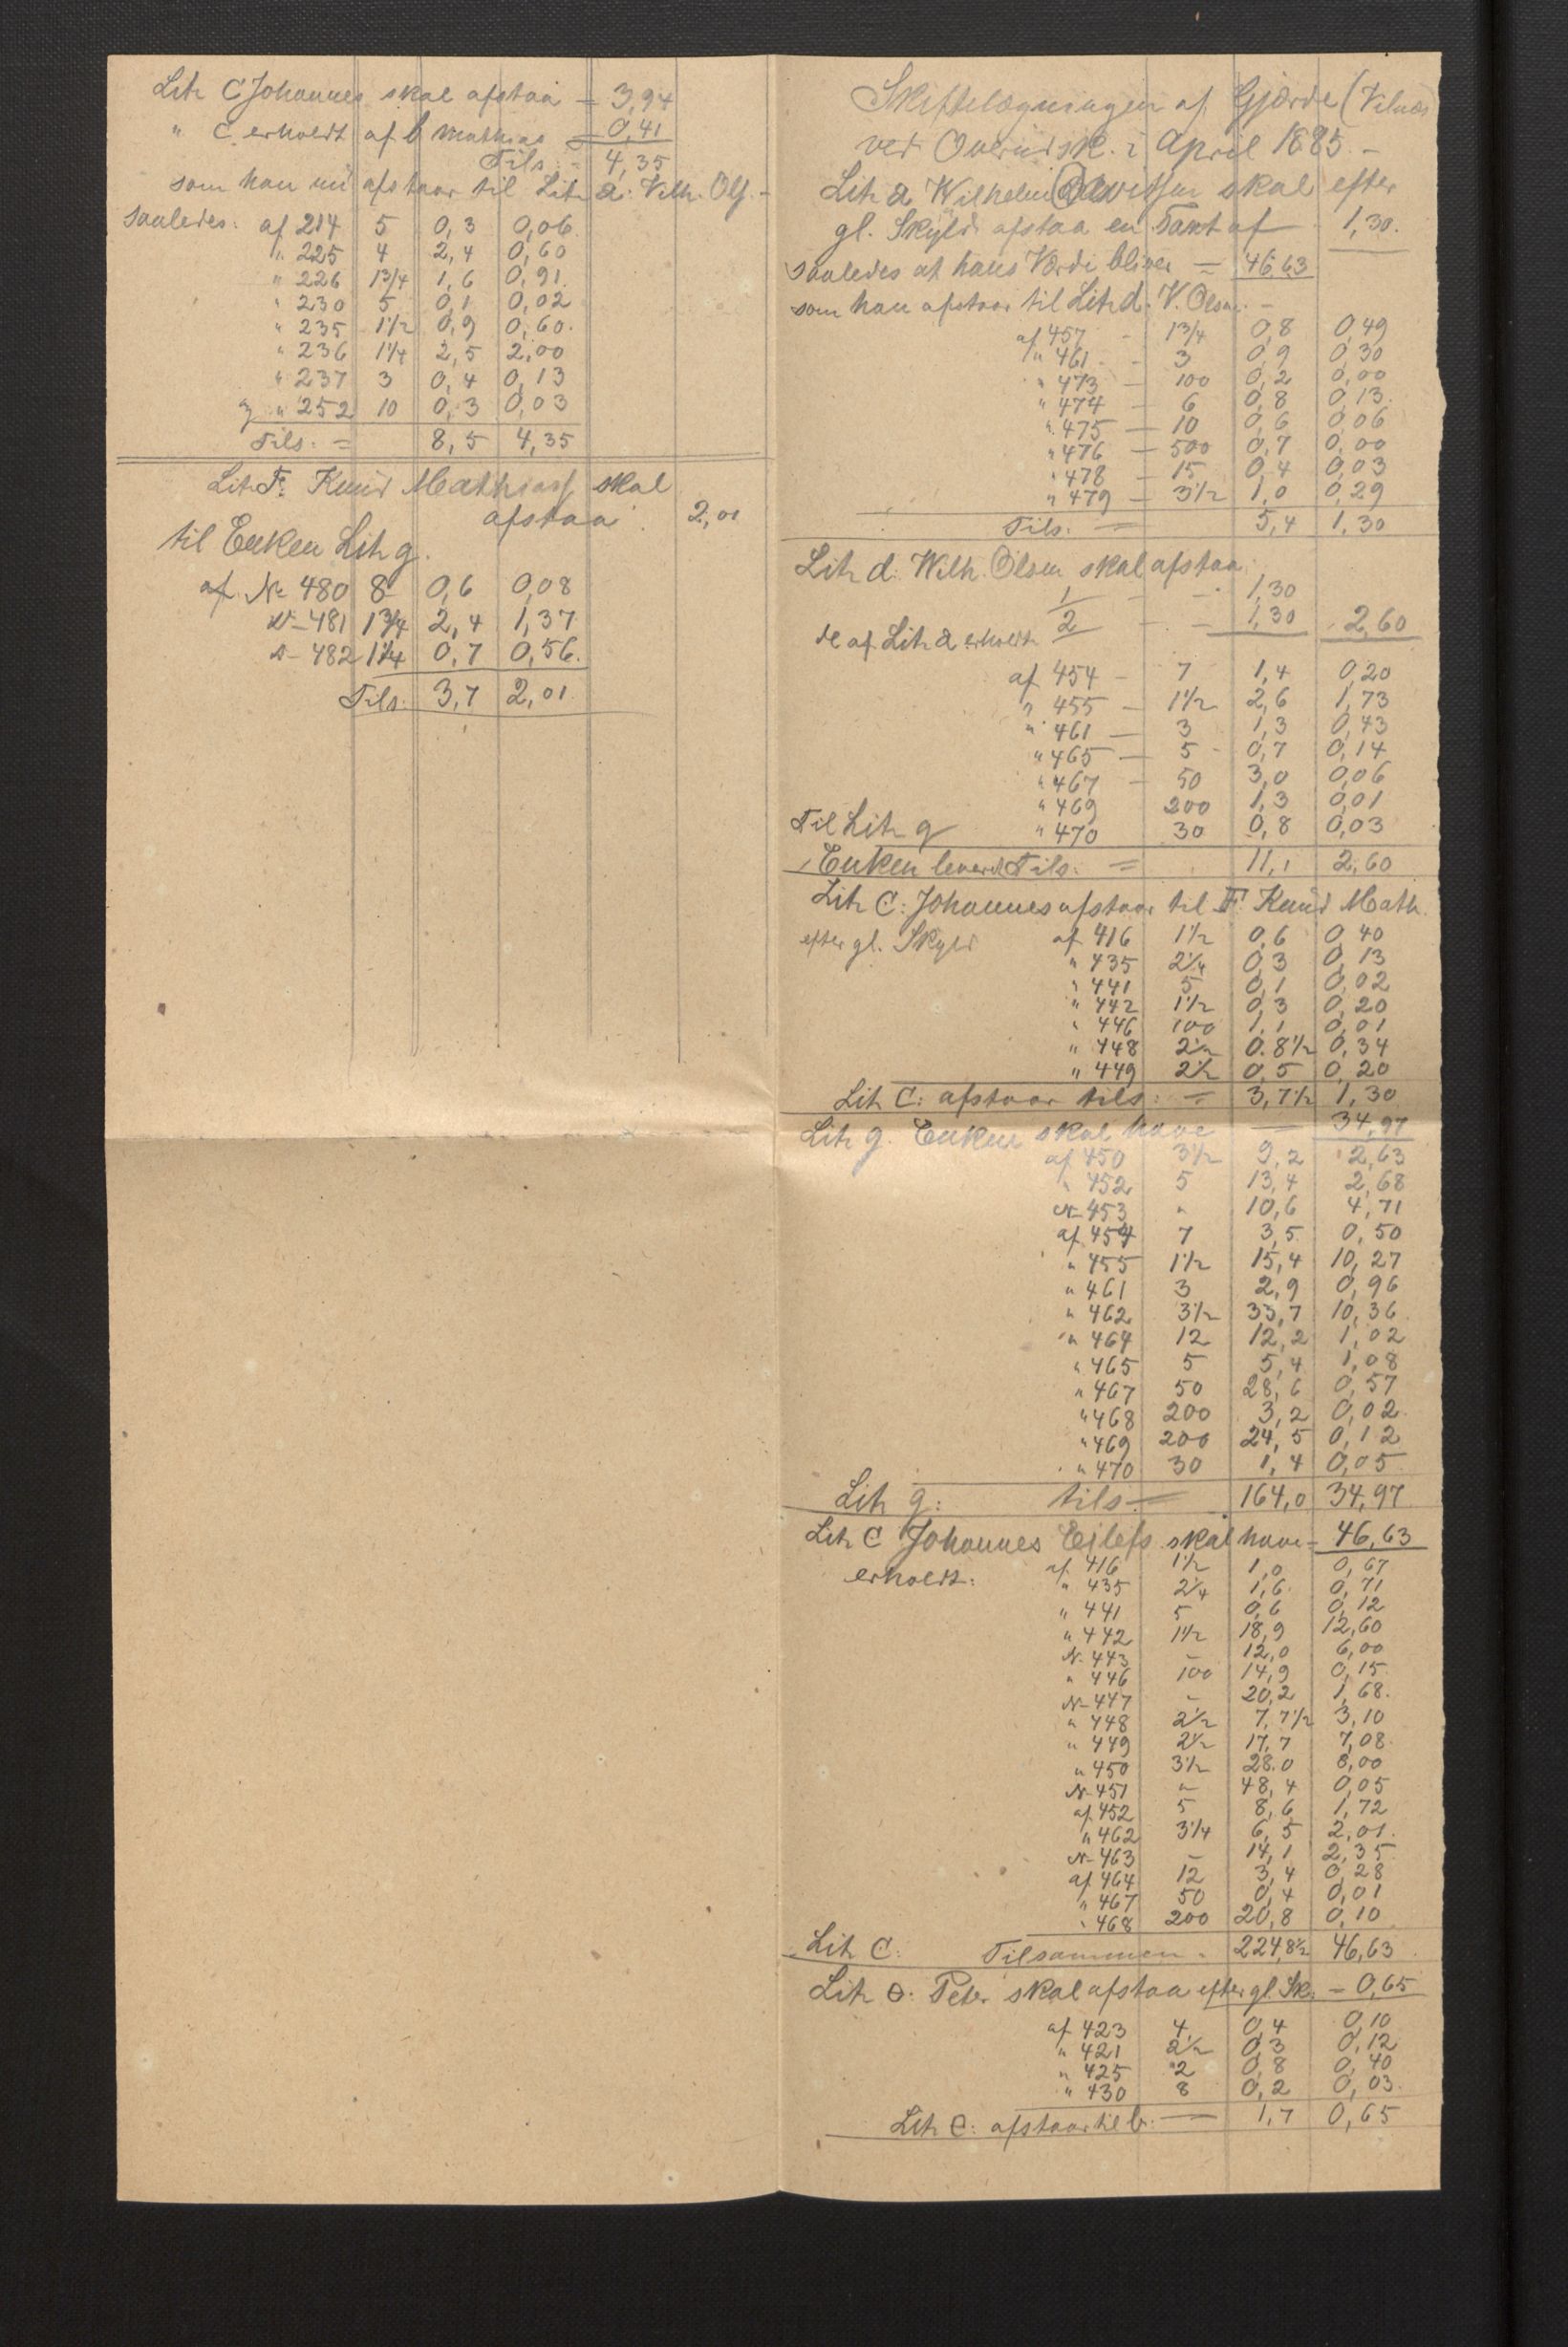 Litr C Johannes skal afstaa = 3,94
" C. erholdt af b Mathias = 0,41
Tils. = 4,35
som han nu afstaar til Litr a. Vilh. Ols. -
saaledes: af 214 5 0,3 0,06.
" 225 4 2,4 0,60
" 226 1 3/4 1,6 0,91.
" 230 5 0,1 0,02
" 235 1 1/2 0,9 0,60.
" 236 1 1/4 2,5 2,00
" 237 3 0,4 0,13
" 252 10 0,3 0,03
Tils. = 8,5 4,35
Litr F. Knud Mathiass skal
afstaa. 2,01
til Enken Litr g.
af No 480 8 0,6 0,08
No 481 1 3/4 2,4 1,37
482 1 1/4 0,7 0,56.
Tils. 3,7 2,01.
Skiftelægningen af Gjærde (Vilnes
ved Overudsk. i April 1885. -
Litr a Wilhelm skal efter
gl. Skyld afstaa en Taxt af 1,30.
saaledes at hans Værdi bliver = 46,63
som han afstaar til Litr d. V. Olsen. -
af 457 - 1 3/4 0,8 0,49
" 461 - 3 0,9 0,30
" 473 - 100 0,2 0,00
" 474 - 6 0,8 0,13.
" 475 - 10 0,6 0,06
" 476 - 500 0,7 0,00
" 478 - 15 0,4 0,03
" 479 - 3 1/2 1,0 0,29
Tils. = 5,4 1,30
Litr d. Wilh. Olsen skal afstaa
1 - - 1,30
de af Litr a erholdt 2 - - 1,30 2,60
af 454 - 7 1,4 0,20
" 455 - 1 1/2 2,6 1,73
" 461 - 3 1,3 0,43
" 465 - 5 - 0,7 0,14
" 467 - 50 3,0 0,06
" 469 200 1,3 0,01
Til Litr g " 470 30 0,8 0,03
Enken leveret Tils. = 11,1 2,60
Litr C: Johannes afstaar til F. Knud Math.
efter gl. Skyld af 416 1 1/2 0,6 0,40
" 435 2 1/4 0,3 0,13
" 441 5 0,1 0,02
" 442 1 1/2 0,3 0,20
" 446 100 1,1 0,01
" 448 2 1/2 0.8 1/2 0,34
" 449 2 1/2 0,5 0,20
Litr C: afstaar tils: = 3,7 1/2 1,30
Litr g. Enken skal have - 34,97
af 450 3 1/2 9,2 2,63
" 452 5 13,4 2,68
No 453 " 10,6 4,71
af 454 7 3,5 0,50
" 455 1 1/2 15,4 10,27
" 461 3 2,9 0,96
" 462 3 1/2 33,7 10,36
" 464 12 12,2 1,02
" 465 5 5,4 1,08
" 467 50 28,6 0,57
" 468 200 3,2 0,02.
" 469 200 24,5 0,12
" 470 30 1,4 0,05
Litr g: tils = 164,0 34,97
Litr C Johannes Eilefs skal have = 46,63
erholdt: af 416 1 1/2 1,0 0,67
" 435 2 1/4 1,6. 0,71
" 441 5 0,6 0,12
" 442 1 1/2 18,9 12,60
No 443 - 12,0 6,00
" 446 100 14,9 0,15.
No 447 - 20,2 1,68.
" 448 2 1/2 7,7 1/2 3,10
" 449 2 1/2 17,7 7,08.
" 450 3 1/2 28.0 8,00
No 451 " 48,4 0,05
af 452 5 8,6 1,72
" 462 3 1/4 6,5 2,01.
No 463 - 14,1 2,35
af 464 12 3,4 0,28
" 467 50 0,4 0,01
" 468 200 20,8 0,10
Litr C: Tilsammen. 224,8 1/2 46,63
Litr e: Peter skal afstaa efter gl. Sk. = 0,65
af 423 4. 0,4 0,10
" 421 2 1/2 0,3 0,12
" 425 2 0,8 0,40
" 430 8 0,2 0,03.
Litr e: afstaar til b. - 1,7 0,65